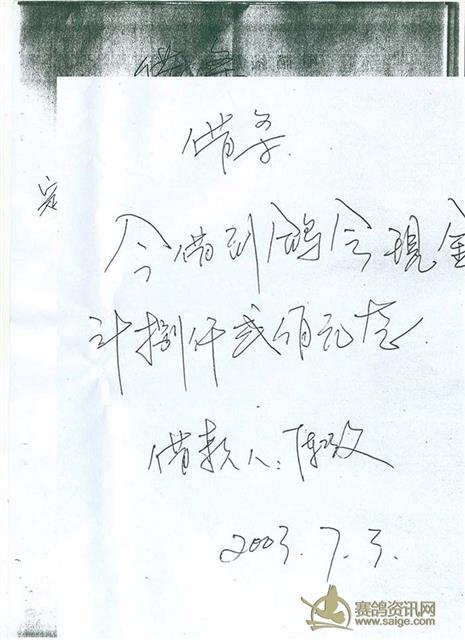 借条
定
今借到鸽会现金
计捌仟贰佰元整
借款人:陈政
2003.7.3.
赛鸽资讯网
www.saige.com